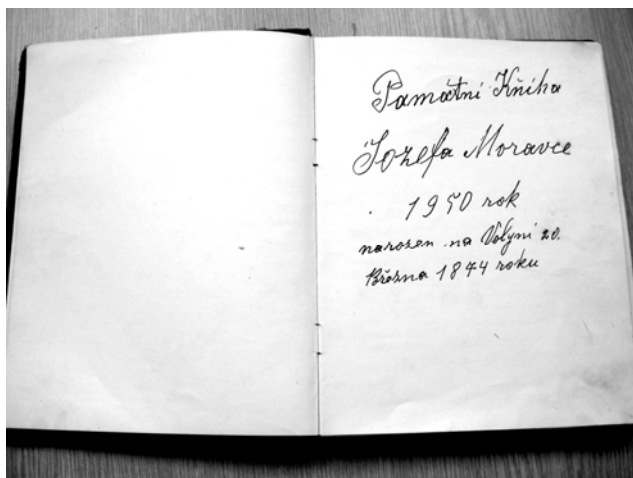 Památní Kňiha
Jozefa Moravce
1950 rok
narozen na Volyni 20.
Března 1874 roku